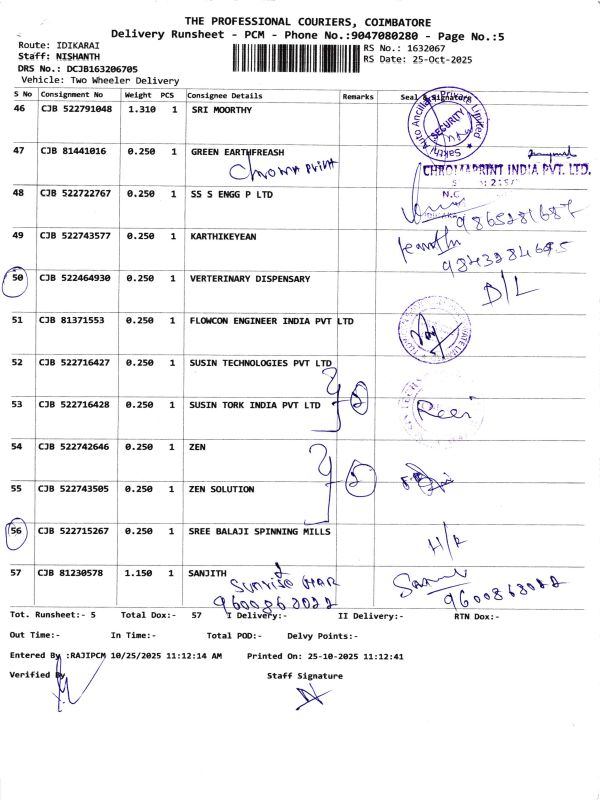 THE PROFESSIONAL COURIERS, COIMBATORE
Delivery Runsheet - PCM - Phone No.:9047080280 - Page No.:5
Route: IDIKARAI RS No.: 1632067
Staff: NISHANTH RS Date: 25-Oct-2025
DRS No.: DCJB163206705
Vehicle: Two Wheeler Delivery
S No Consignment No Weight PCS Consignee Details Remarks Seal & Signature
46 CJB 522791048 1.310 1 SRI MOORTHY
SECURITY
47 CJB 81441016 0.250 1 GREEN EARTHFREASH
Chroma Print
CHROMAPRINT INDIA PVT. LTD.
48 CJB 522722767 0.250 1 SS S ENGG P LTD
9865281687
49 CJB 522743577 0.250 1 KARTHIKEYEAN
50 CJB 522464930 0.250 1 VERTERINARY DISPENSARY
D/L
51 CJB 81371553 0.250 1 FLOWCON ENGINEER INDIA PVT LTD
52 CJB 522716427 0.250 1 SUSIN TECHNOLOGIES PVT LTD
2
53 CJB 522716428 0.250 1 SUSIN TORK INDIA PVT LTD
54 CJB 522742646 0.250 1 ZEN
2
55 CJB 522743505 0.250 1 ZEN SOLUTION
56 CJB 522715267 0.250 1 SREE BALAJI SPINNING MILLS
57 CJB 81230578 1.150 1 SANJITH
9600868022 9600868022
Tot. Runsheet:- 5 Total Dox:- 57 I Delivery:- II Delivery:- RTN Dox:-
Out Time:- In Time:- Total POD:- Delvy Points:-
Entered By :RAJIPCM 10/25/2025 11:12:14 AM Printed On: 25-10-2025 11:12:41
Verified By Staff Signature